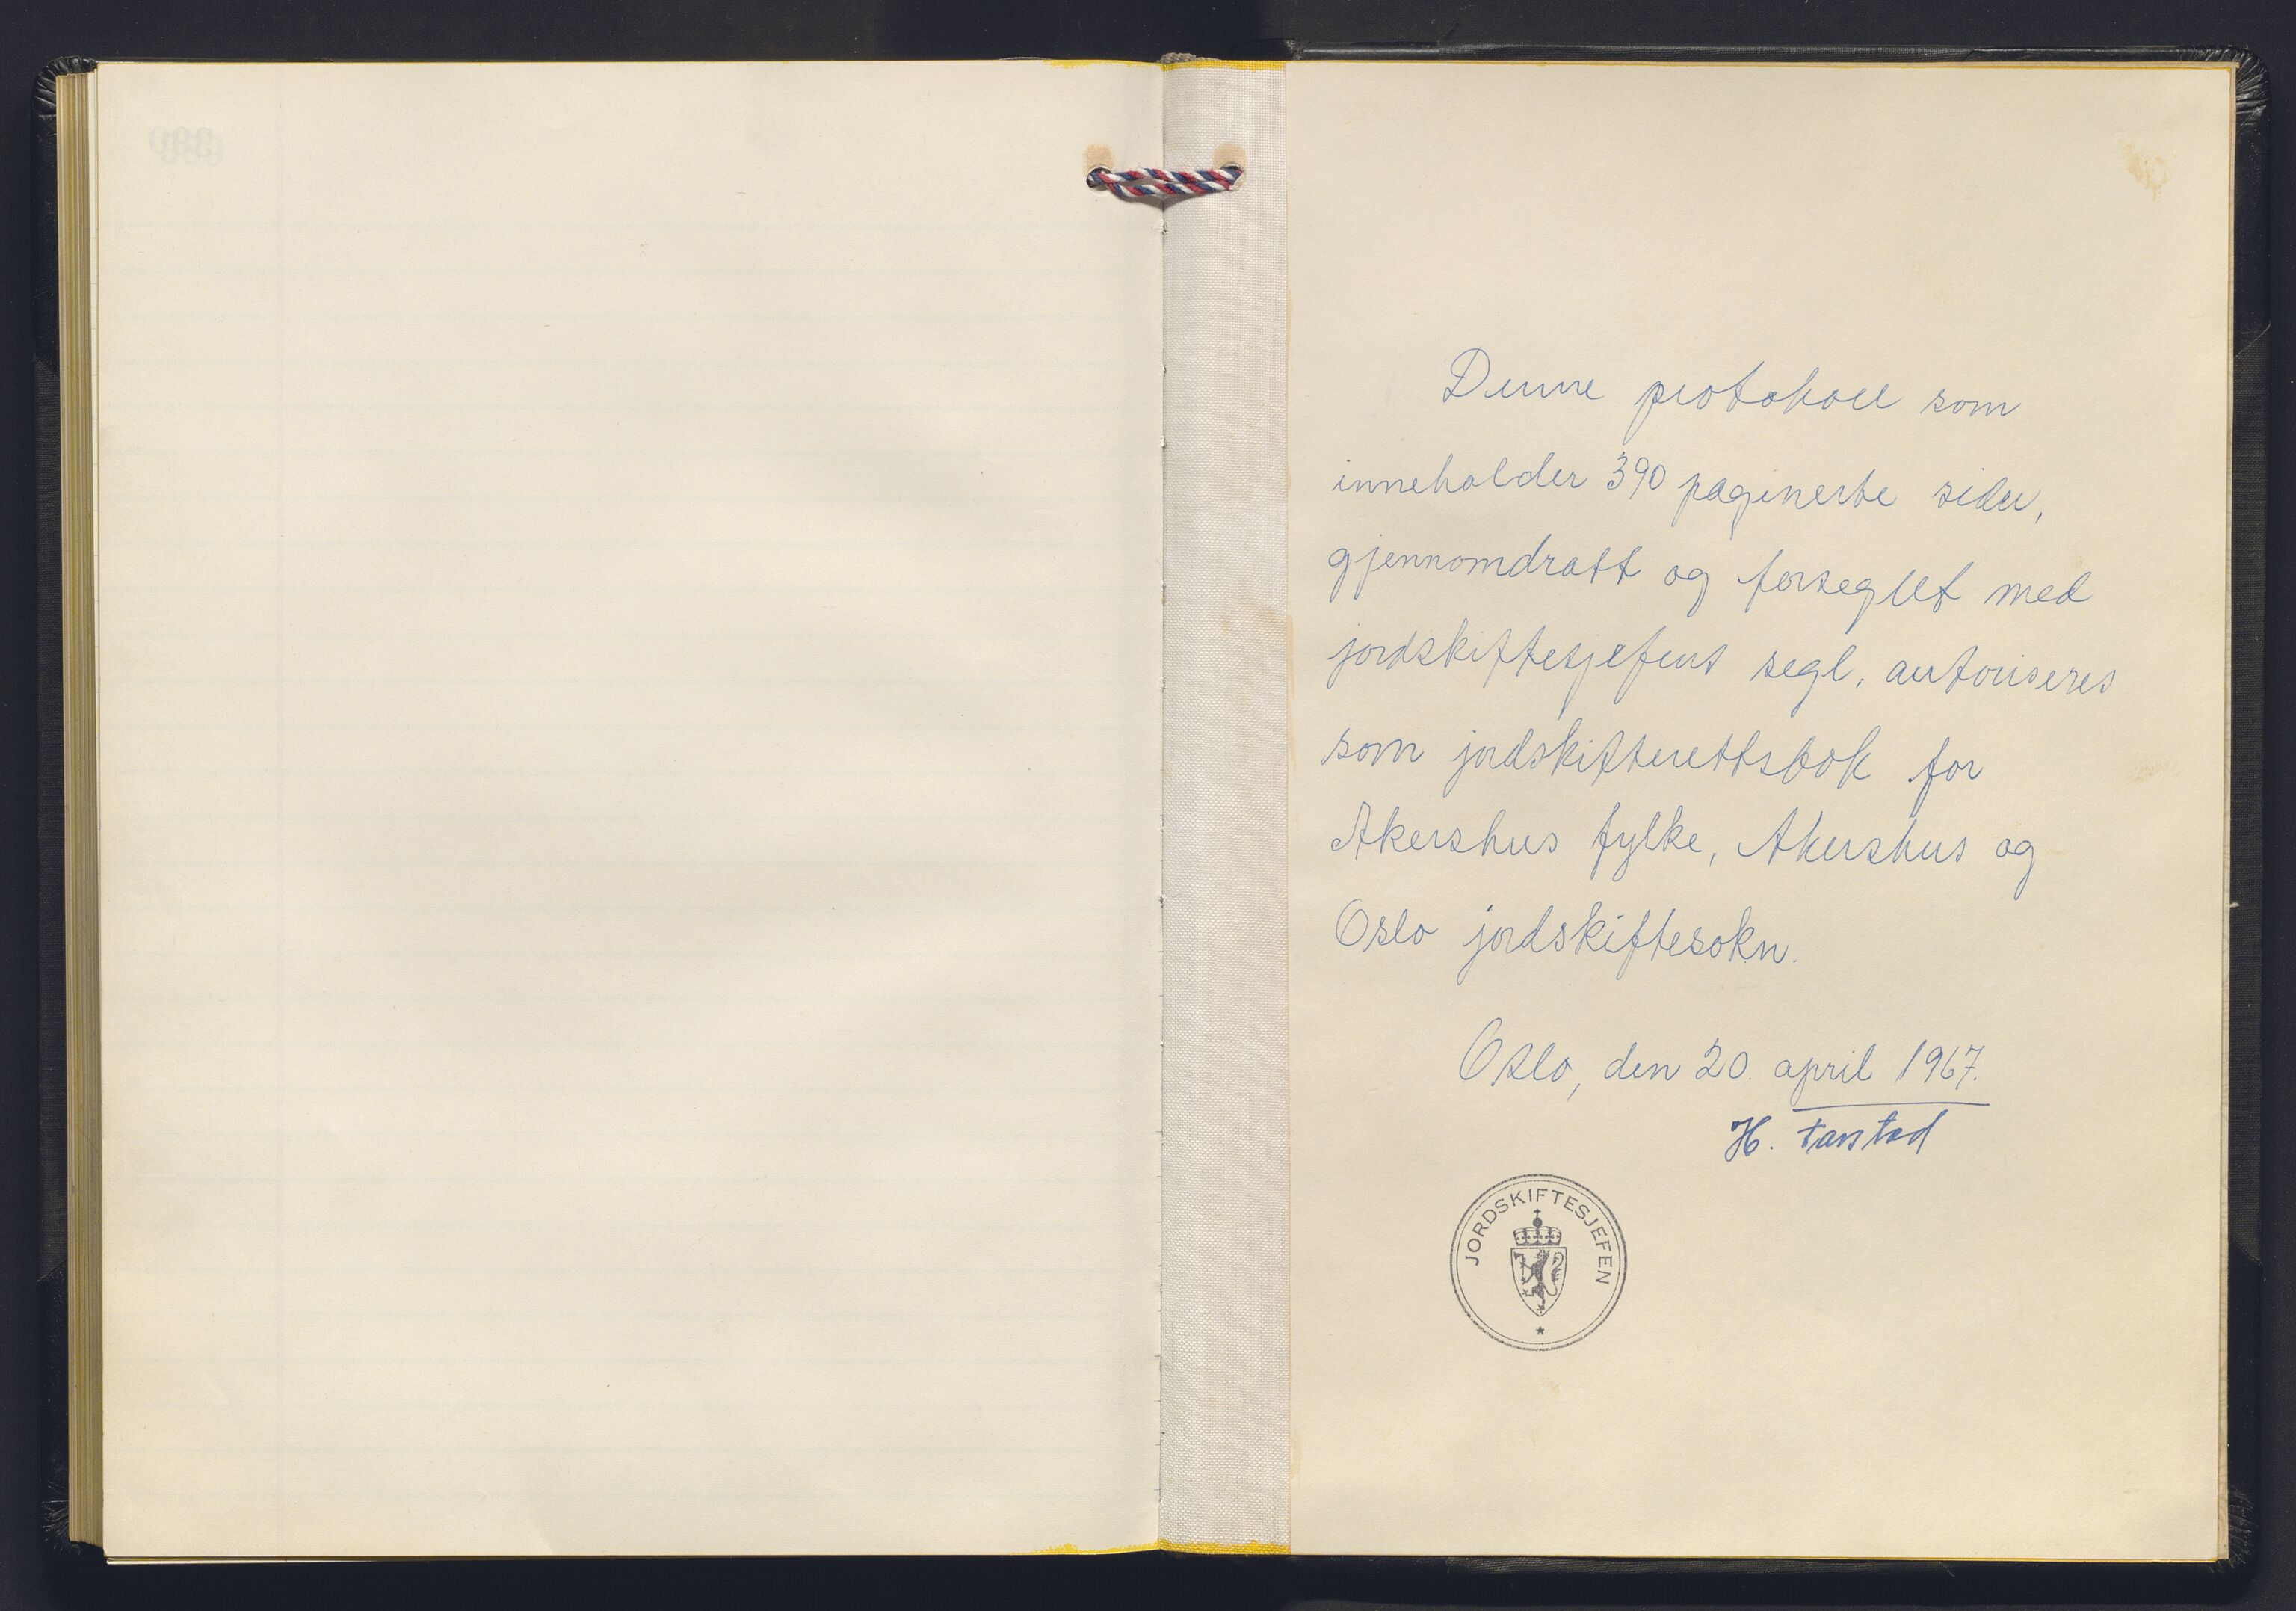 Denne protokoll som
inneholder 390 paginerte sider,
gjennomdratt og forseglet med
jordskiftesjefens segl, autoriseres
som jordskifterettsbok for
Akershus fylke, Akershus og
Oslo jordskiftesokn.
Oslo, den 20. april 1967.
H.
JORDSKIFTESJEFEN